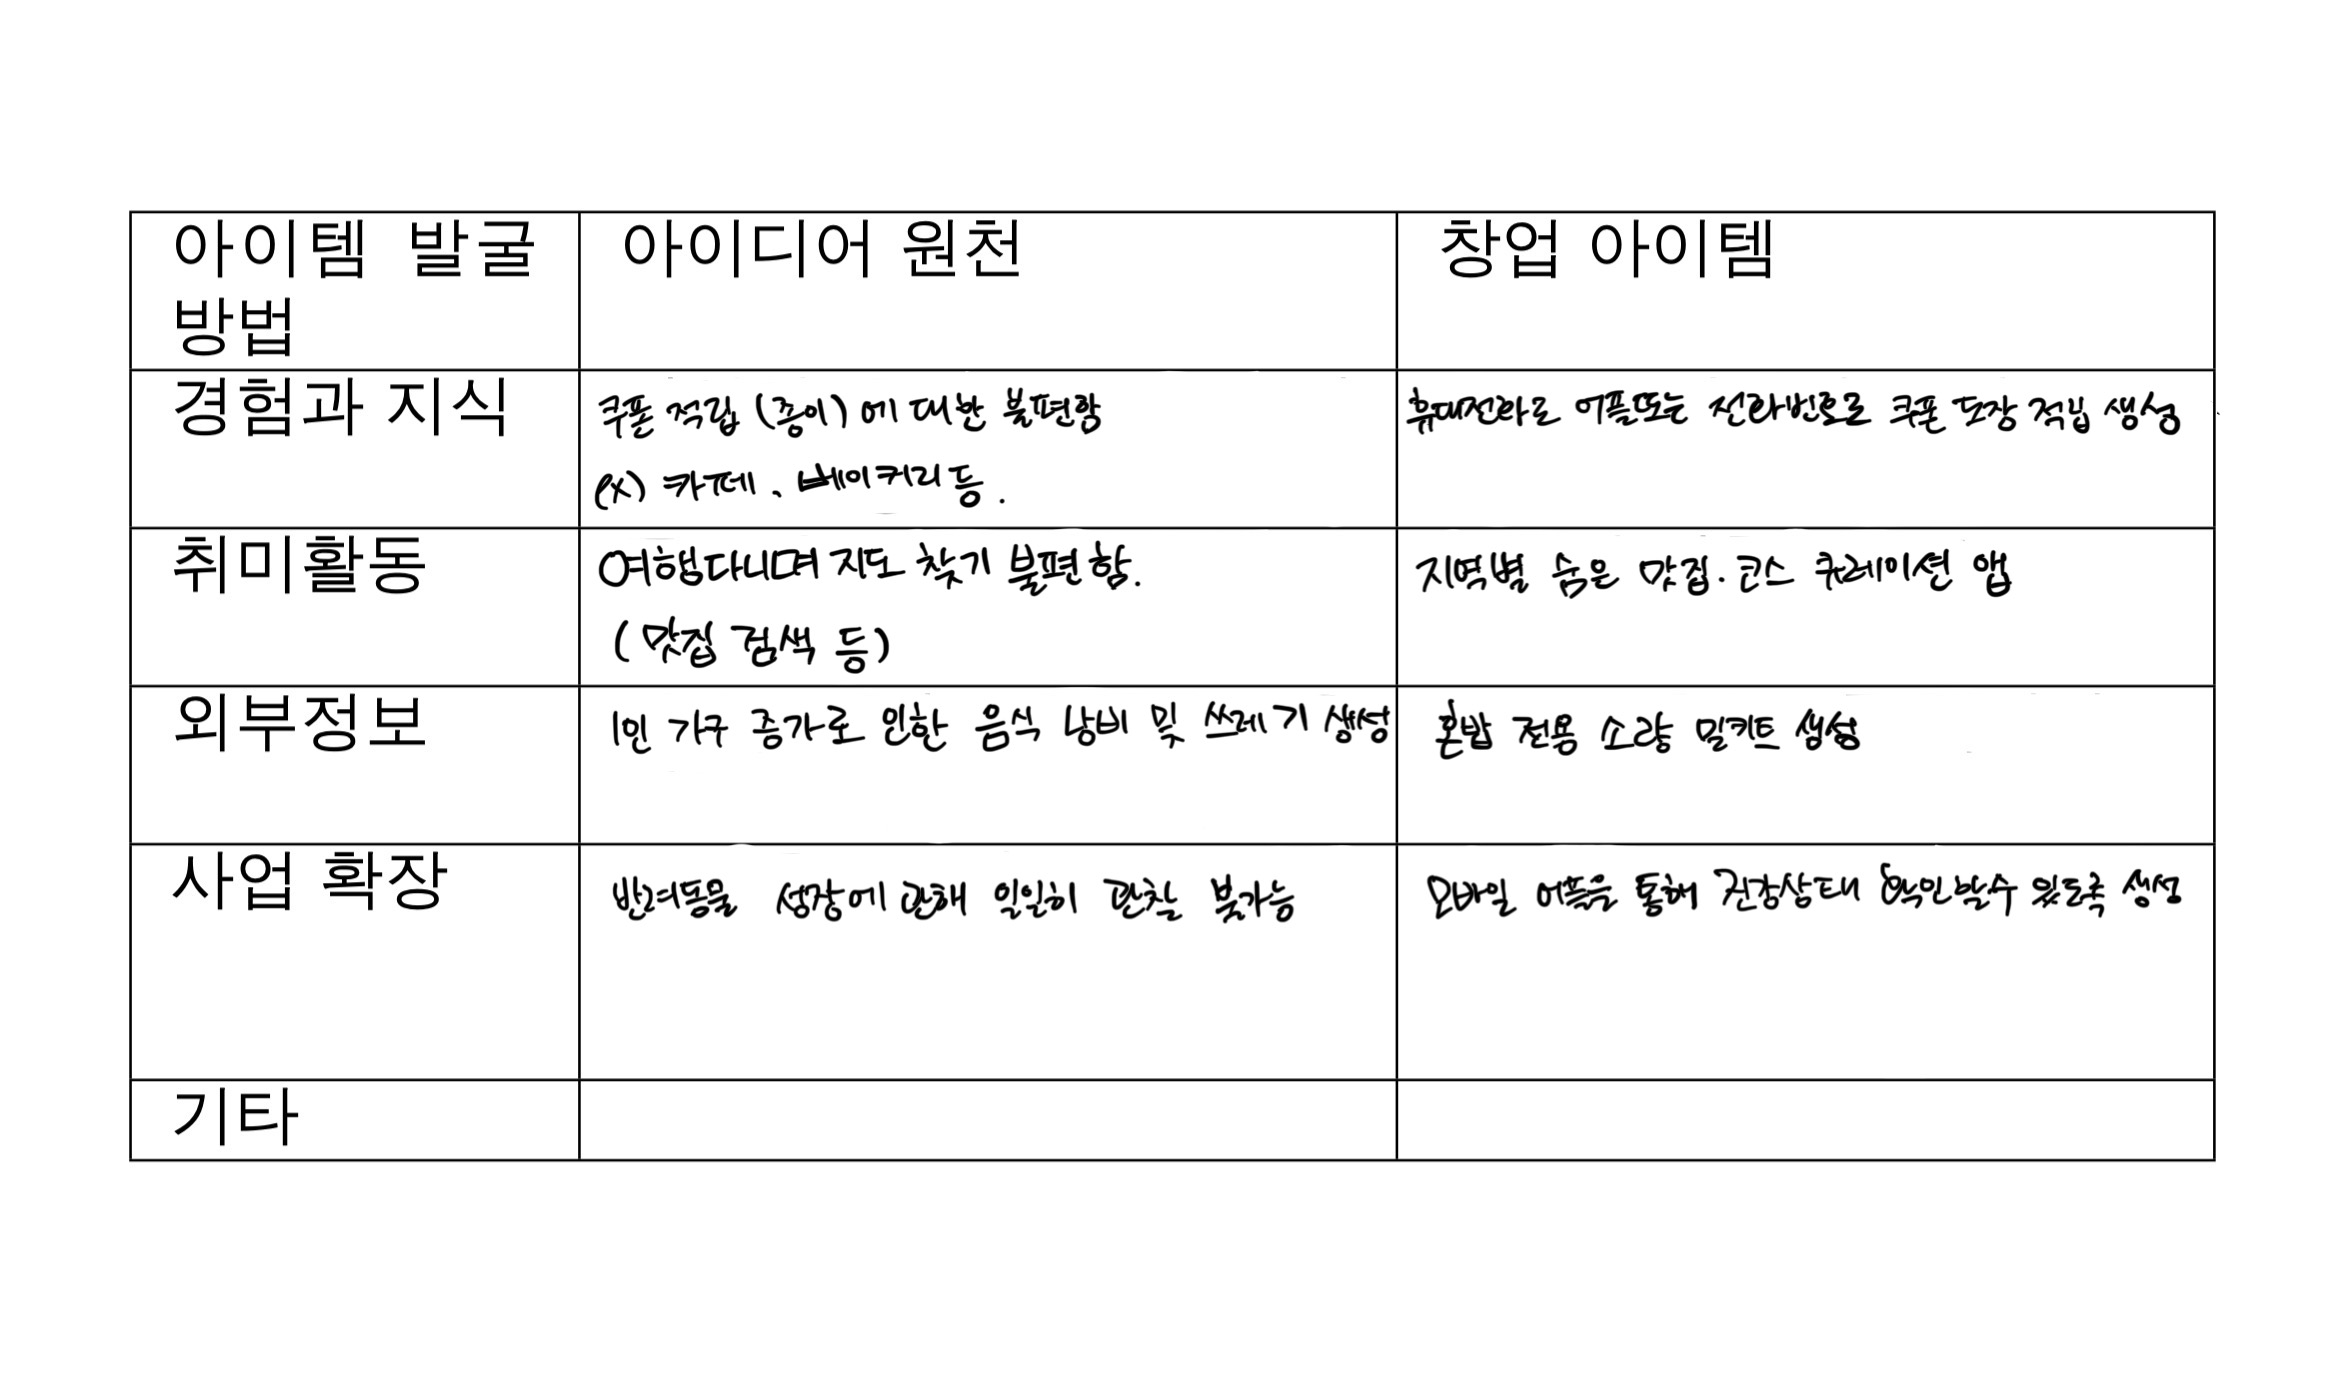 아이템 발굴
방법
아이디어 원천
창업 아이템
경험과 지식
쿠폰 적립 (종이)에 대한 불편함
ex) 카페, 베이커리 등.
휴대전화로 어플또는 전화번호로 쿠폰 도장 적립 생성
취미활동
여행다니며 지도 찾기 불편함.
(맛집 검색 등)
지역별 숨은 맛집·코스 큐레이션 앱
외부정보
1인 가구 증가로 인한 음식 낭비 및 쓰레기 생성
혼밥 전용 소량 밀키트 생성
사업 확장
반려동물 성장에 관해 일일히 관찰 불가능
모바일 어플을 통해 건강상태 확인할수 있도록 생성
기타